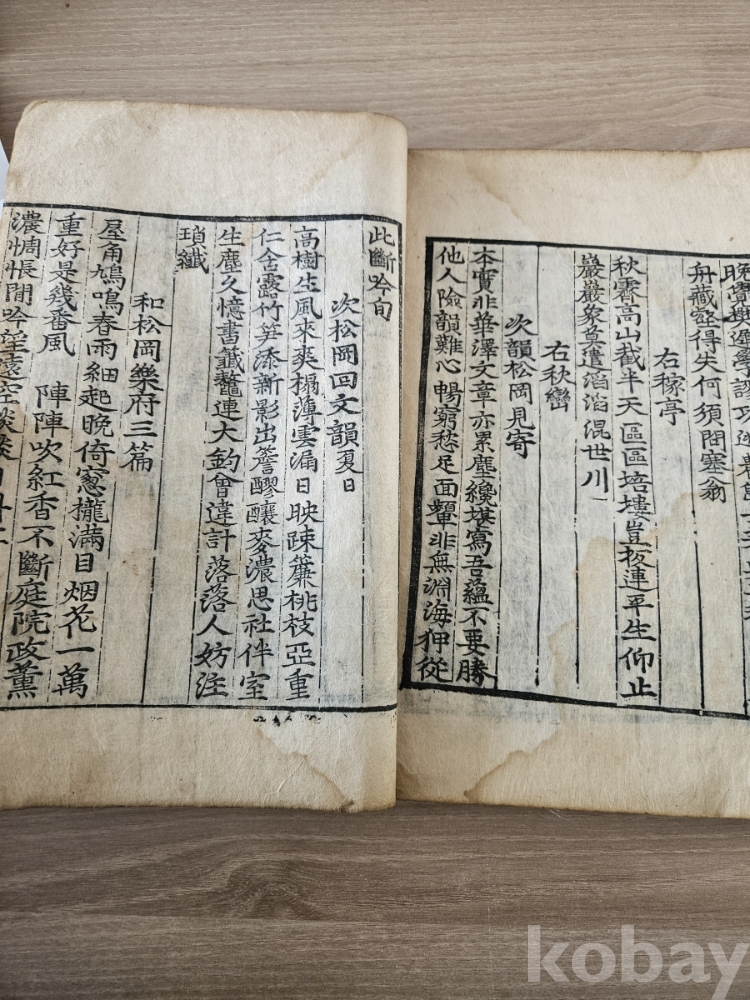 舟藏壑得失何須問塞翁
右稼亭
秋霽高山截半天區區培塿豈扳連平生仰止
巖巖象莫遣滔滔混世川
右秋巒
次韻松岡見寄
本實非華澤文章亦累塵纔堪寫吾蘊不要勝
他人險韻難心暢窮愁足面顰非無淵海狎從
此斷吟句
次松岡回文韻夏日
高樹生風來爽榻薄雲漏日映疎簾桃枝亞重
仁舍露竹笋添新影出簷醪釀麥濃思社伴室
生塵久憶書籤鼇連大釣會違計落落人妨注
瑣纖
和松岡樂府三篇
屋角鳩鳴春雨細起晚倚窓櫳滿目烟花一萬
重好是幾番風 陣陣吹紅香不斷庭院政薰
濃惆悵閒吟望
kobay